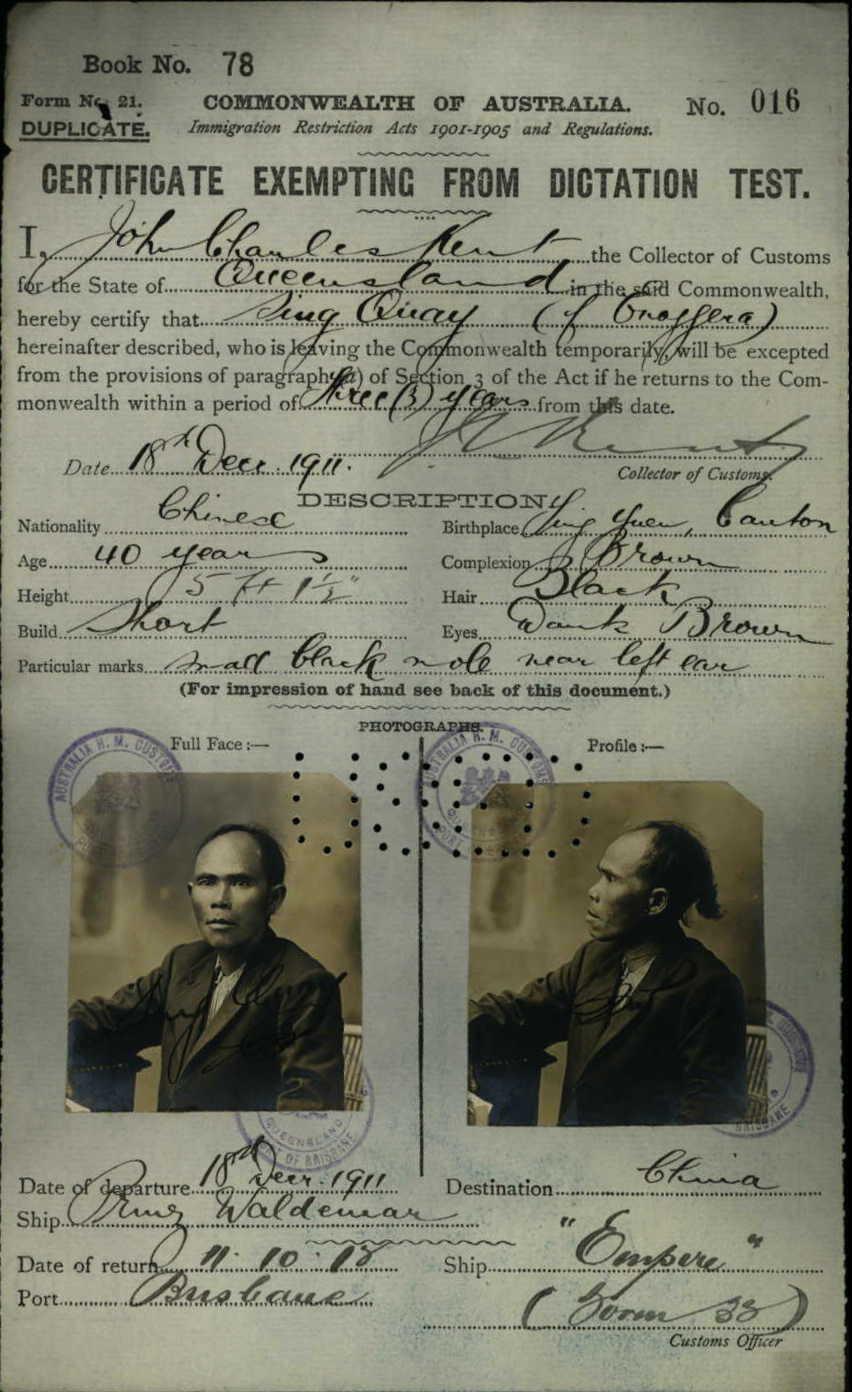 Book No. 78
Form No. 21. COMMONWEALTH OF AUSTRALIA. No. 016
DUPLICATE. Immigration Restriction Acts 1901-1905 and Regulations.
CERTIFICATE EXEMPTING FROM DICTATION TEST.
I, John Charles Kent the Collector of Customs
for the State of Queensland in the said Commonwealth,
hereby certify that Sing Quay (of Enoggera)
hereinafter described, who is leaving the Commonwealth temporarily, will be excepted
from the provisions of paragraph (a) of Section 3 of the Act if he returns to the Com-
monwealth within a period of three (3) years from this date.
Date 18th Decr. 1911.
Collector of Customs.
DESCRIPTION.
Nationality Chinese Birthplace Yuen, Canton
Age 40 years Complexion Brown
Height 5 ft 1½" Hair Black
Build Short Eyes Dark Brown
Particular marks small black mole near left ear
(For impression of hand see back of this document.)
PHOTOGRAPHS.
Full Face :— Profile :—
AUSTRALIA H. M. CUSTOMS
AUSTRALIA H. M. CUSTOMS
QUEENSLAND
PORT OF BRISBANE
BRISBANE
Date of departure 18th Decr. 1911 Destination China
Ship Prinz Waldemar
Date of return 11. 10. 13 Ship "Empire"
Port Brisbane (Form 32)
Customs Officer